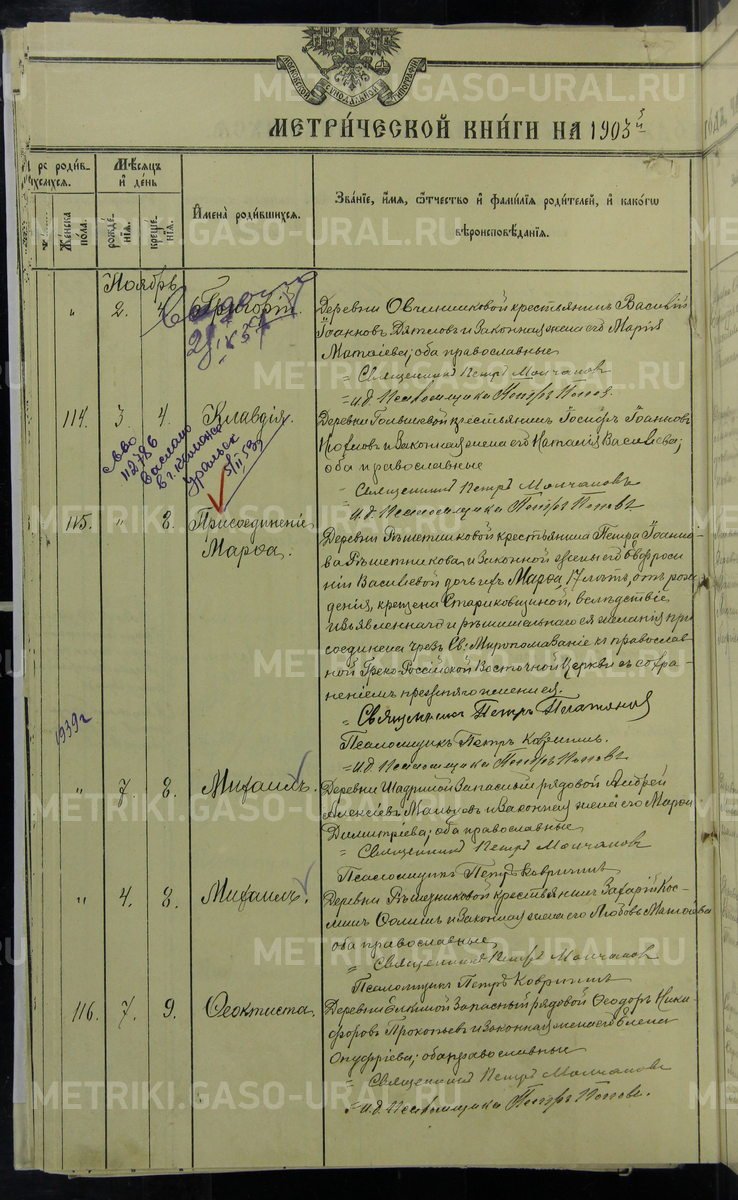 МОСКОВСКОЙ СѴНОДАЛЬНОЙ ТИПОГРАФІИ
МЕТРИ́ЧЕСКОЙ КНИ́ГИ НА 1903й
родив-
шихся.
Же́нска по́ла.
Мѣ́сяцъ и́ де́нь
рожде́нїя.
креще́нїя.
И҆мена̀ роди́вшихся.
Зва́нїе, и҆́мя, ѻ҆́тчество и҆ фами́лїя роди́телей, и҆ како́гѡ
вѣроисповѣ́данїя.
Ноябрь
" 2. 4. Григорій.
Деревни Овчинниковой крестьянинъ Василій
Іоанновъ Дятловъ и законная жена его Марія
Матѳіева; оба православные
= Священникъ Петръ Молчановъ
= и.д. Псаломщика Петръ Поповъ.
114. 3. 4. Клавдія.
Ѳедоровъ
112786
Выслано
в г. Каменск
Уральск
5/II 59
Деревни крестьянинъ Іоанновъ
и законная жена его Наталія Василіева;
оба православные
= Священникъ Петръ Молчановъ
= и.д. Псаломщика Петръ Поповъ
115. " 8. Присоединеніе
Марѳа.
Деревни Рѣшетниковой крестьянина Петра Іоанно-
ва Рѣшетникова и законной жены его Евфроси-
ніи Василіевой дочь ихъ Марѳа 17 лѣтъ, отъ рож-
денія, крещена Стариковщиной, вслѣдствіе
изъявленнаго и рѣшительнаго ея желанія при-
соединена чрезъ Св. Мѵропомазаніе къ православ-
ной Греко-Россійской Восточной Церкви съ сохра-
неніемъ прежняго имени ея.
= Священникъ Петръ
Псаломщикъ Петръ Ковригинъ.
= и.д. Псаломщика Петръ Поповъ
1939г
" 7. 8. Михаилъ.
Деревни Шадриной запасный рядовой Андрей
Алексіевъ Мальцовъ и законная жена его Марѳа
Димитріева; оба православные
= Священникъ Петръ Молчановъ
Псаломщикъ Петръ Ковригинъ
" 4. 8. Михаилъ.
Деревни Рѣшетниковой крестьянинъ Захарій Кос-
минъ и законная жена его Любовь Матѳіева
оба православные
= Священникъ Петръ Молчановъ
Псаломщикъ Петръ Ковригинъ
116. 7. 9. Ѳеоктиста.
Деревни запасный рядовой Ѳеодоръ Ники-
форовъ Прокопьевъ и законная жена его Елена
Онуфріева; оба православные
= Священникъ Петръ Молчановъ
= и.д. Псаломщика Петръ Поповъ.
METRIKI.GASO-URAL.RU